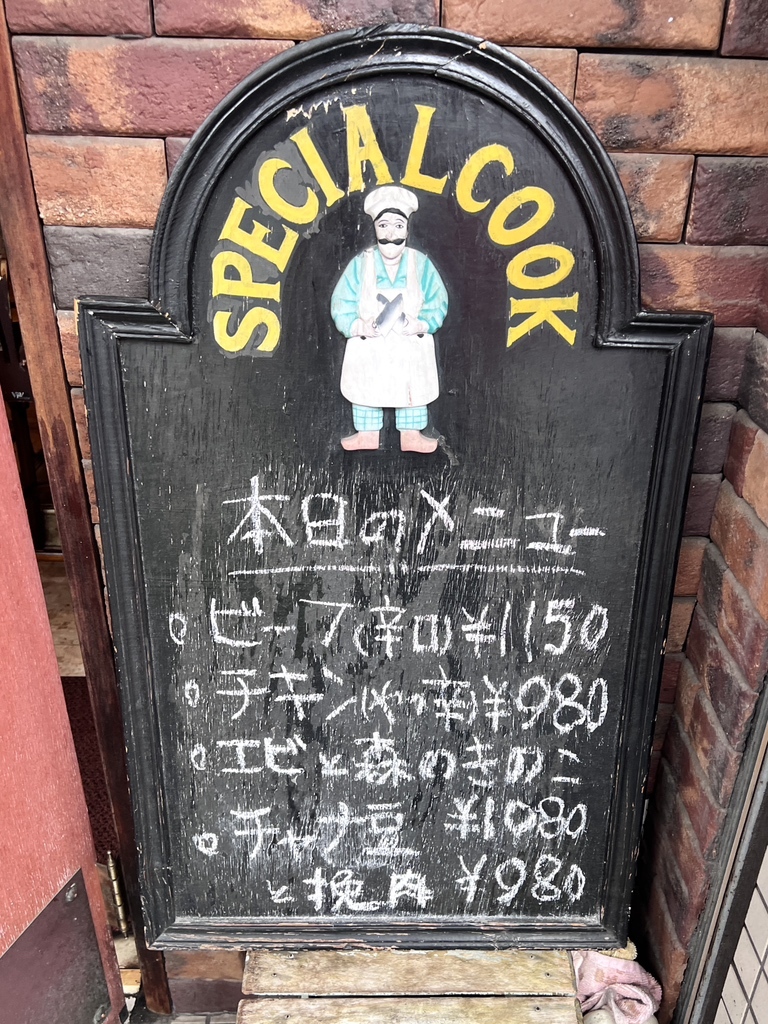 SPECIAL COOK
本日のメニュー
○ ビーフ(辛口) ¥1150
○ チキン(やや辛) ¥980
○ エビと森のきのこ
¥1080
○ チャナ豆
と挽肉 ¥980